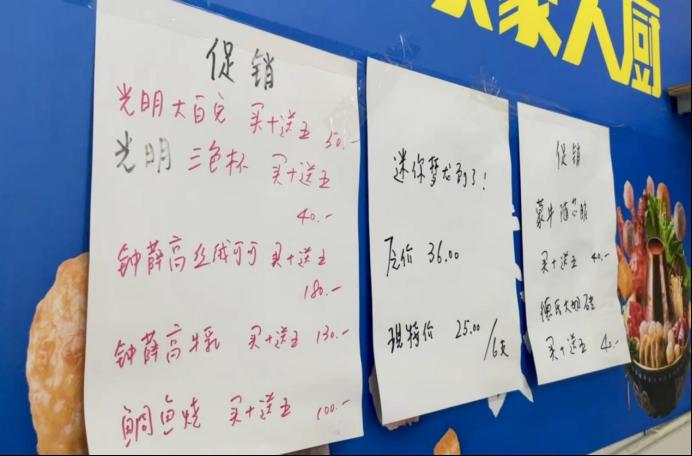 大厨
促销
光明大白兔 买十送五 50.-
光明三色杯 买十送五
40.-
钟薛高丝绒可可 买十送五
180.-
钟薛高牛乳 买十送五 130.-
鲷鱼烧 买十送五 100.-
迷你梦龙到了!
原价 36.00
现特价 25.00
/6支
促销
蒙牛随芯脆
买十送五 40.-
德氏大奶
买十送五 40.-